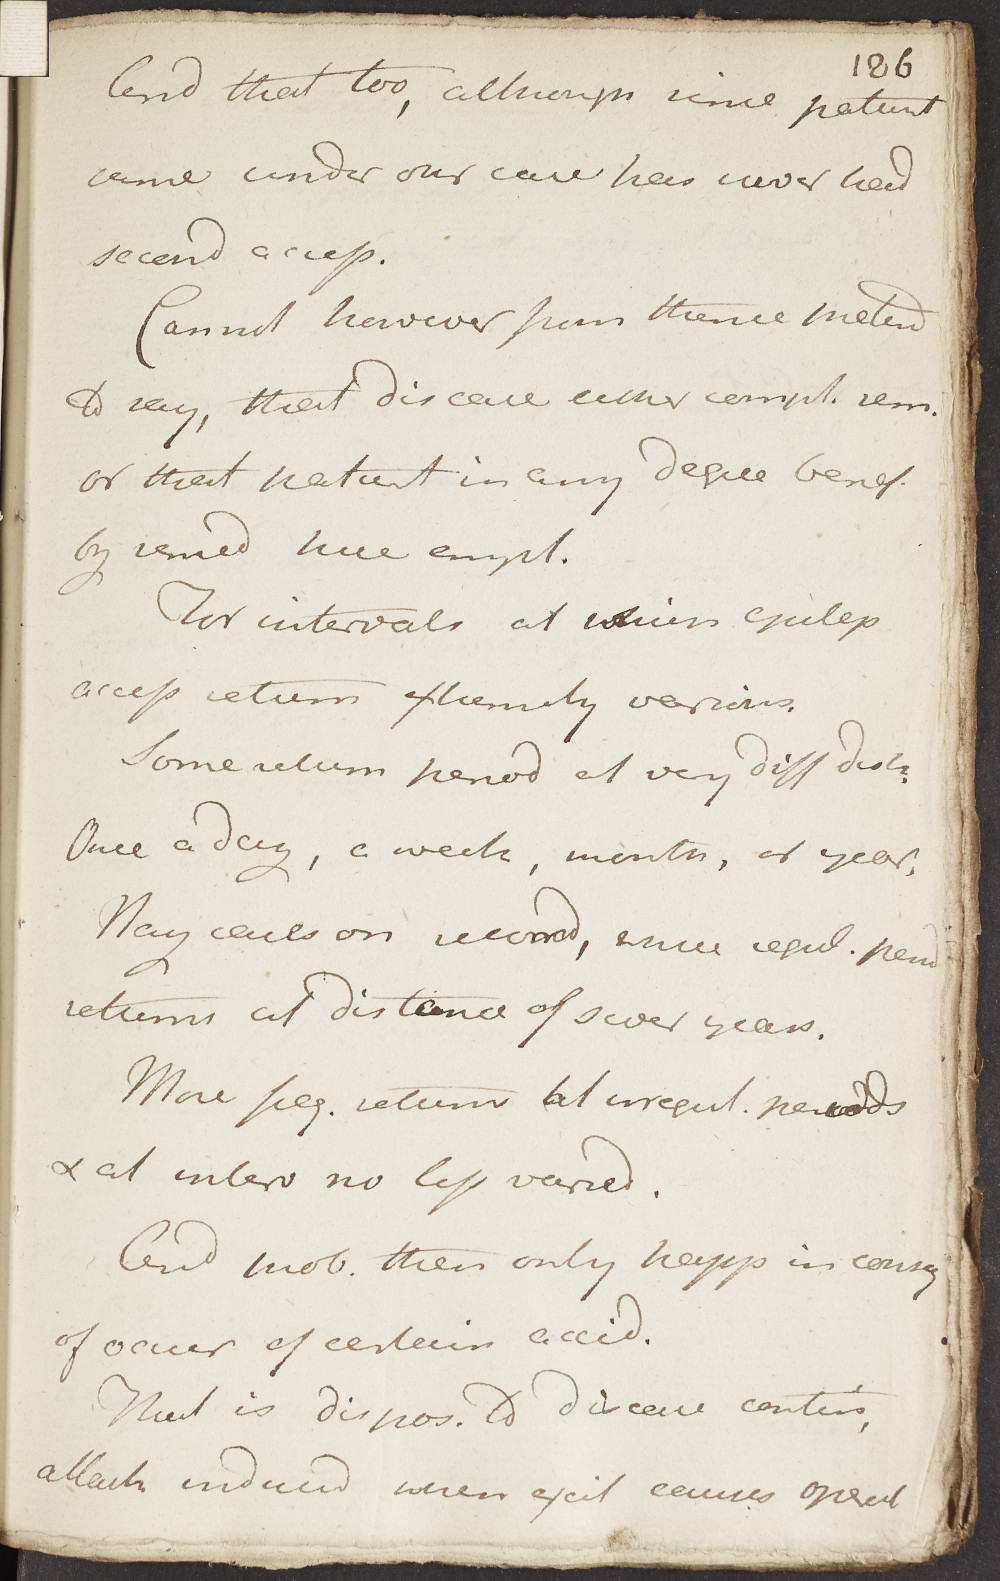 186
And that too, although since patient
came under our care has never had
second access.
Cannot however from thence pretend
to say, that disease either compl. rem.
or that patient in any degree benef.
by remed here empl.
For intervals at which epilep
access return extremely various.
Some return period at very diff dist.
Once a day, a week, month, or year.
Nay cases on record, where regul. period
returns at distance of sever years.
More freq. return at irregul. periods
& at interv no less varied.
And prob. then only happ in conseq
of occur of certain accid.
That is dispos. to disease contin,
attack induced when excit causes operat